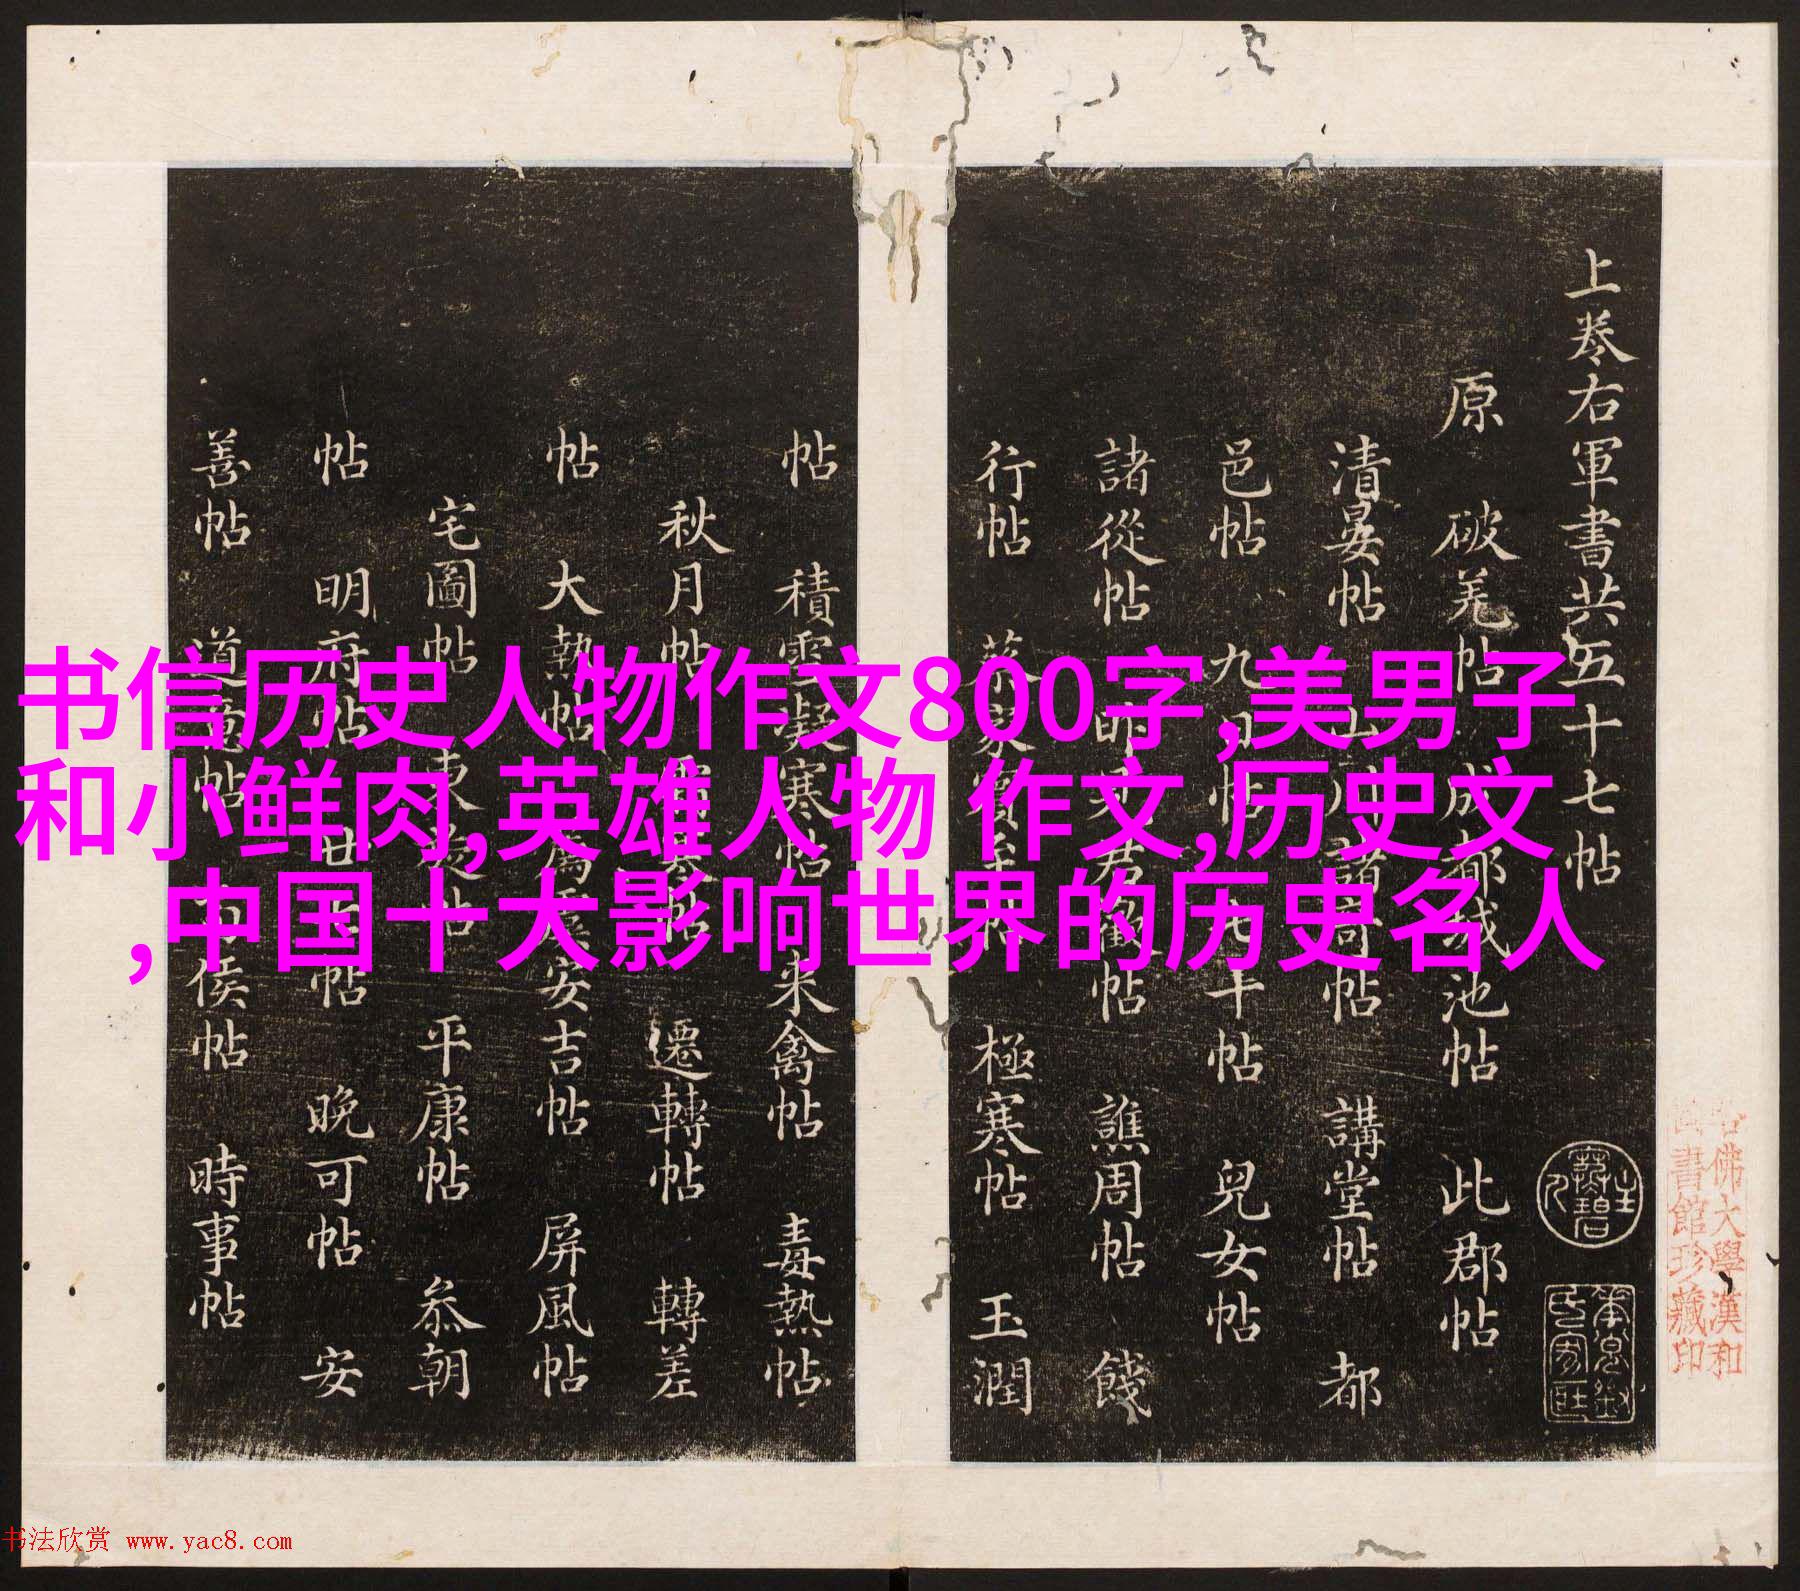 书信历史人物作文800字,美男子
和小鲜肉,英雄人物 作文,历史文
,中国十大影响世界的历史名人
上卷右軍書共五十七帖
原 破羌帖 成都城池帖 此郡帖
清晏帖 山川諸奇帖 講堂帖 都
邑帖 九日帖 七十帖 兒女帖
諸從帖 帖 譙周帖 餞
行帖 帖 極寒帖 玉潤
帖 積雪凝寒帖 来禽帖 毒熱帖
秋月帖 帖 遷轉帖 轉差
帖 大熱帖 安吉帖 屏風帖
宅圖帖 帖 平康帖 叅朝
帖 明府帖 帖 晚可帖 安
善帖 道 帖 侯帖 時事帖
佛大學漢和
書館珍藏印
书法欣赏 www.yac8.com